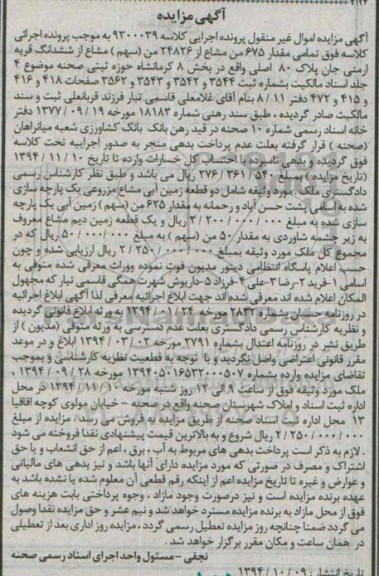 آگهی مزایده
آگهی مزایده اموال غیر منقول پرونده اجرایی کلاسه ۹۳۰۰۰۳۹ به موجب پرونده اجرائی
کلاسه فوق تمامی مقدار ۶۷۵ من مشاع از ۲۴۸۲۶ من (سهم) مشاع از ششدانگ قریه
ارمنی جان پلاک ۸۰ اصلی واقع در بخش ۸ کرمانشاه حوزه ثبتی صحنه موضوع ۴
جلد اسناد مالکیت بشماره ثبت ۳۵۴۴ و ۳۵۴۲ و ۳۵۴۳ و ۳۵۶۲ صفحات ۴۱۸ و ۴۱۶
و ۴۱۵ و ۴۷۲ دفتر ۱۱ / ۸ بنام آقای غلامعلی قاسمی تبار فرزند قربانعلی ثبت و سند
مالکیت صادر گردیده ، طبق سند رهنی شماره ۱۸۱۸۳ مورخه ۱۹ / ۰۹ / ۱۳۷۷ دفتر
خانه اسناد رسمی شماره ۱۰ صحنه در قید رهن بانک بانک کشاورزی شعبه میانراهان
(صحنه ) قرار گرفته بعلت عدم پرداخت بدهی منجر به صدور اجراییه تحت کلاسه
فوق گردیده و بدهی نامبرده با احتساب کل خسارات وارده تا تاریخ ۱۰ / ۱۱ / ۱۳۹۴
(تاریخ مزایده) بمبلغ ۵۴۰ / ۳۶۱ / ۲۷۶ ریال می باشد و طبق نظر کارشناس رسمی
دادگستری ملک مورد وثیقه شامل دو قطعه زمین آبی مشاع مزروعی یک پارچه سازی
شده به اسامی پشت حسن آباد و رحمانه به مقدار ۶۲۵ من (سهم) زمین آبی یک پارچه
سازی شده به مبلغ ۰۰۰ / ۰۰۰ / ۲۰۰ / ۲ ریال و یک قطعه زمین دیم مشاع معروف
به زیر چشمه شاوردی به مقدار ۵۰ من (سهم) به مبلغ ۰۰۰ / ۰۰۰ / ۵۰ ریال که در
مجموع کل ملک مورد وثیقه بمبلغ ۰۰۰ / ۰۰۰ / ۲۵۰ / ۲ ریال ارزیابی شده و چون
حسب اعلام پاسگاه انتظامی دینور مدیون فوت نموده ووراث معرفی شده متوفی به
اسامی ۱-فرید ۲-رضا ۳-علی ۴-فرزاد ۵-داریوش شهرت همگی قاسمی تبار که مجهول
المکان اعلام شده اند معرفی شده اند جهت ابلاغ اجرائیه معرفی لذا آگهی ابلاغ اجرائیه
در روزنامه حسبان بشماره ۲۸۳۲ مورخه ۲۴ / ۰۱ / ۱۳۹۴ به ورثه ابلاغ قانونی گردیده
و نظریه کارشناس رسمی دادگستری بعلت عدم دسترسی به ورثه متوفی (مدیون ) از
طریق نشر در روزنامه اعتدال بشماره ۲۷۹۱ مورخه ۰۲ / ۰۳ / ۱۳۹۴ ابلاغ و در موعد
مقرر قانونی اعتراضی واصل نگردید و با توجه به قطعیت نظریه کارشناسی و بموجب
تقاضای مزایده وارده بشماره ۱۳۹۴۰۵۰۱۶۵۳۲۰۰۰۵۰۷ مورخه ۲۸ / ۰۹ / ۱۳۹۴
ملک مورد وثیقه فوق از ساعت ۹ الی ۱۲ روز شنبه مورخه ۱۰ / ۱۱ / ۱۳۹۴ در محل
اداره ثبت اسناد و املاک شهرستان صحنه واقع در صحنه – خیابان مولوی کوچه اقاقیا
۱۳ محل اداره ثبت اسناد صحنه از طریق مزایده به فروش می رسد، مزایده از مبلغ
۰۰۰ / ۰۰۰ / ۲۵۰ / ۲ ریال شروع و به بالاترین قیمت پیشنهادی نقدا فروخته می شود
. لازم به ذکر است پرداخت بدهی های مربوط به آب ، برق ، اعم از حق انشعاب و یا حق
اشتراک و مصرف در صورتی که مورد مزایده دارای آنها باشد و نیز بدهی های مالیاتی
و عوارض و غیره تا تاریخ مزایده اعم از اینکه رقم قطعی آن معلوم شده یا نشده باشد به
عهده برنده مزایده است و نیز درصورت وجود مازاد ، وجوه پرداختی بابت هزینه های
فوق از محل مازاد به برنده مزایده مسترد خواهد شد و نیم عشر و حق مزایده نقدا وصول
می گردد ضمنا چنانچه روز مزایده تعطیل رسمی گردد ، مزایده روز اداری بعد از تعطیلی
در همان ساعت و مکان مقرر برگزار خواهد شد .
نجفی –مسئول واحد اجرای اسناد رسمی صحنه
تاریخ انتشار : ۰۹ / ۱۰ / ۱۳۹۴